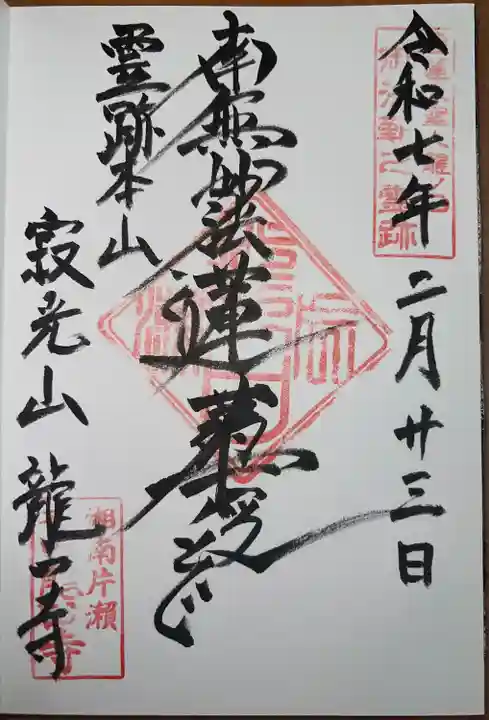 令和七年 二月廿三日
南無妙法蓮華経
霊跡本山
寂光山 龍口寺
相南片瀬
龍口寺